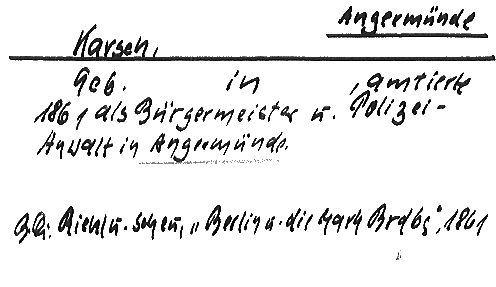 Angermünde
Karsch,
Geb. in , amtierte
1861 als Bürgermeister u. Polizei-
Anwalt in Angermünde.
Riehl u. Scheu, „Berlin u. die Mark Brdbg", 1861